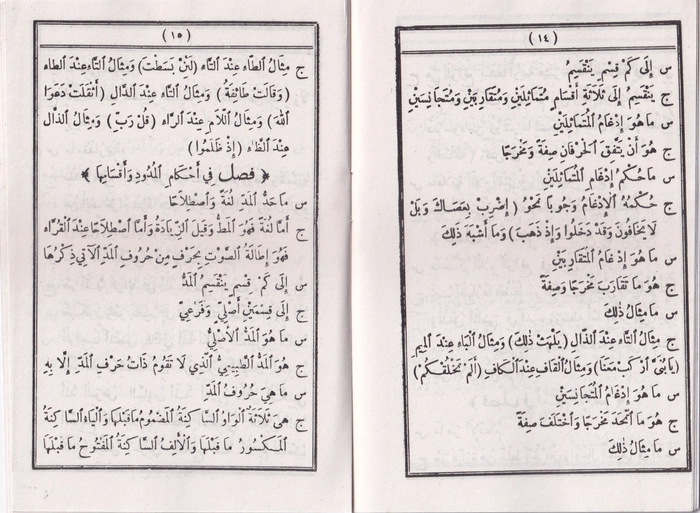 (١٤)
س إِلَى كَمْ قِسْمٍ يَنْقَسِمُ
ج يَنْقَسِمُ إِلَى ثَلَاثَةِ أَقْسَامٍ مُتَمَاثِلَيْنِ وَمُتَقَارِبَيْنِ وَمُتَجَانِسَيْنِ
س مَا هُوَ إِدْغَامُ الْمُتَمَاثِلَيْنِ
ج هُوَ أَنْ يَتَّفِقَ الْحَرْفَانِ صِفَةً وَمَخْرَجًا
س مَا حُكْمُ إِدْغَامِ الْمُتَمَاثِلَيْنِ
ج حُكْمُهُ الْإِدْغَامُ وَجُوبًا نَحْوُ (اضْرِبْ بِعَصَاكَ وَبَلْ
لَا يَخَافُونَ وَقَدْ دَخَلُوا وَإِذْ ذَهَبَ) وَمَا أَشْبَهَ ذَلِكَ
س مَا هُوَ إِدْغَامُ الْمُتَقَارِبَيْنِ
ج هُوَ مَا تَقَارَبَ مَخْرَجًا وَصِفَةً
س مَا مِثَالُ ذَلِكَ
ج مِثَالُ الثَّاءِ عِنْدَ الذَّالِ (يَلْهَثْ ذَلِكَ) وَمِثَالُ الْبَاءِ عِنْدَ الْمِيمِ
(يَا بُنَيَّ ارْكَبْ مَعَنَا) وَمِثَالُ الْقَافِ عِنْدَ الْكَافِ (أَلَمْ نَخْلُقْكُمْ)
س مَا هُوَ إِدْغَامُ الْمُتَجَانِسَيْنِ
ج هُوَ مَا اتَّحَدَ مَخْرَجًا وَاخْتَلَفَ صِفَةً
س مَا مِثَالُ ذَلِكَ
(١٥)
ج مِثَالُ الطَّاءِ عِنْدَ التَّاءِ (لَئِنْ بَسَطْتَ) وَمِثَالُ التَّاءِ عِنْدَ الطَّاءِ
(وَقَالَتْ طَائِفَةٌ) وَمِثَالُ التَّاءِ عِنْدَ الدَّالِ (أَثْقَلَتْ دَعَوَا
اللهَ) وَمِثَالُ اللَّامِ عِنْدَ الرَّاءِ (قُلْ رَبِّ) وَمِثَالُ الذَّالِ
عِنْدَ الظَّاءِ (إِذْ ظَلَمُوا)
﴿ فصل في أَحْكَامِ الْمُدُودِ وَأَقْسَامِهَا ﴾
س مَا حَدُّ الْمَدِّ لُغَةً وَاصْطِلَاحًا
ج أَمَّا لُغَةً فَهُوَ الْمَطُّ وَقِيلَ الزِّيَادَةُ وَأَمَّا اصْطِلَاحًا عِنْدَ الْقُرَّاءِ
فَهُوَ إِطَالَةُ الصَّوْتِ بِحَرْفٍ مِنْ حُرُوفِ الْمَدِّ الْآتِي ذِكْرُهَا
س إِلَى كَمْ قِسْمٍ يَنْقَسِمُ الْمَدُّ
ج إِلَى قِسْمَيْنِ أَصْلِيٍّ وَفَرْعِيٍّ
س مَا هُوَ الْمَدُّ الْأَصْلِيُّ
ج هُوَ الْمَدُّ الطَّبِيعِيُّ الَّذِي لَا تَقُومُ ذَاتُ حَرْفِ الْمَدِّ إِلَّا بِهِ
س مَا هِيَ حُرُوفُ الْمَدِّ
ج هِيَ ثَلَاثَةٌ الْوَاوُ السَّاكِنَةُ الْمَضْمُومُ مَا قَبْلَهَا وَالْيَاءُ السَّاكِنَةُ
الْمَكْسُورُ مَا قَبْلَهَا وَالْأَلِفُ السَّاكِنَةُ الْمَفْتُوحُ مَا قَبْلَهَا